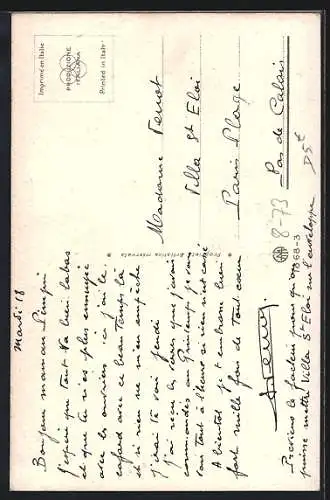 Imprimé en Italie
PRODUZIONE
ITALIANA
Printed in Italy
Mardi 18
Bonjour maman
j'espère que tout va bien labas
et que tu n'es plus ennuyée
avec les ouvriers ici j'ai le
cafard avec ce beau temps là
et si rien ne m'en empêche
j'irai te voir jeudi
j'ai reçu les robes que j'avais
commandées au Printemps je vous
tout à l'heure si rien n'est cassé
A bientôt je t'embrasse bien
fort mille fois de tout cœur
Previens le facteur pour qu'on
puisse mettre Villa St Eloi sur l'enveloppe
Madame
Villa St Eloi
Paris Plage
Pas de Calais
Proprietà Artistica riservata
8-73
D5E
1868-3